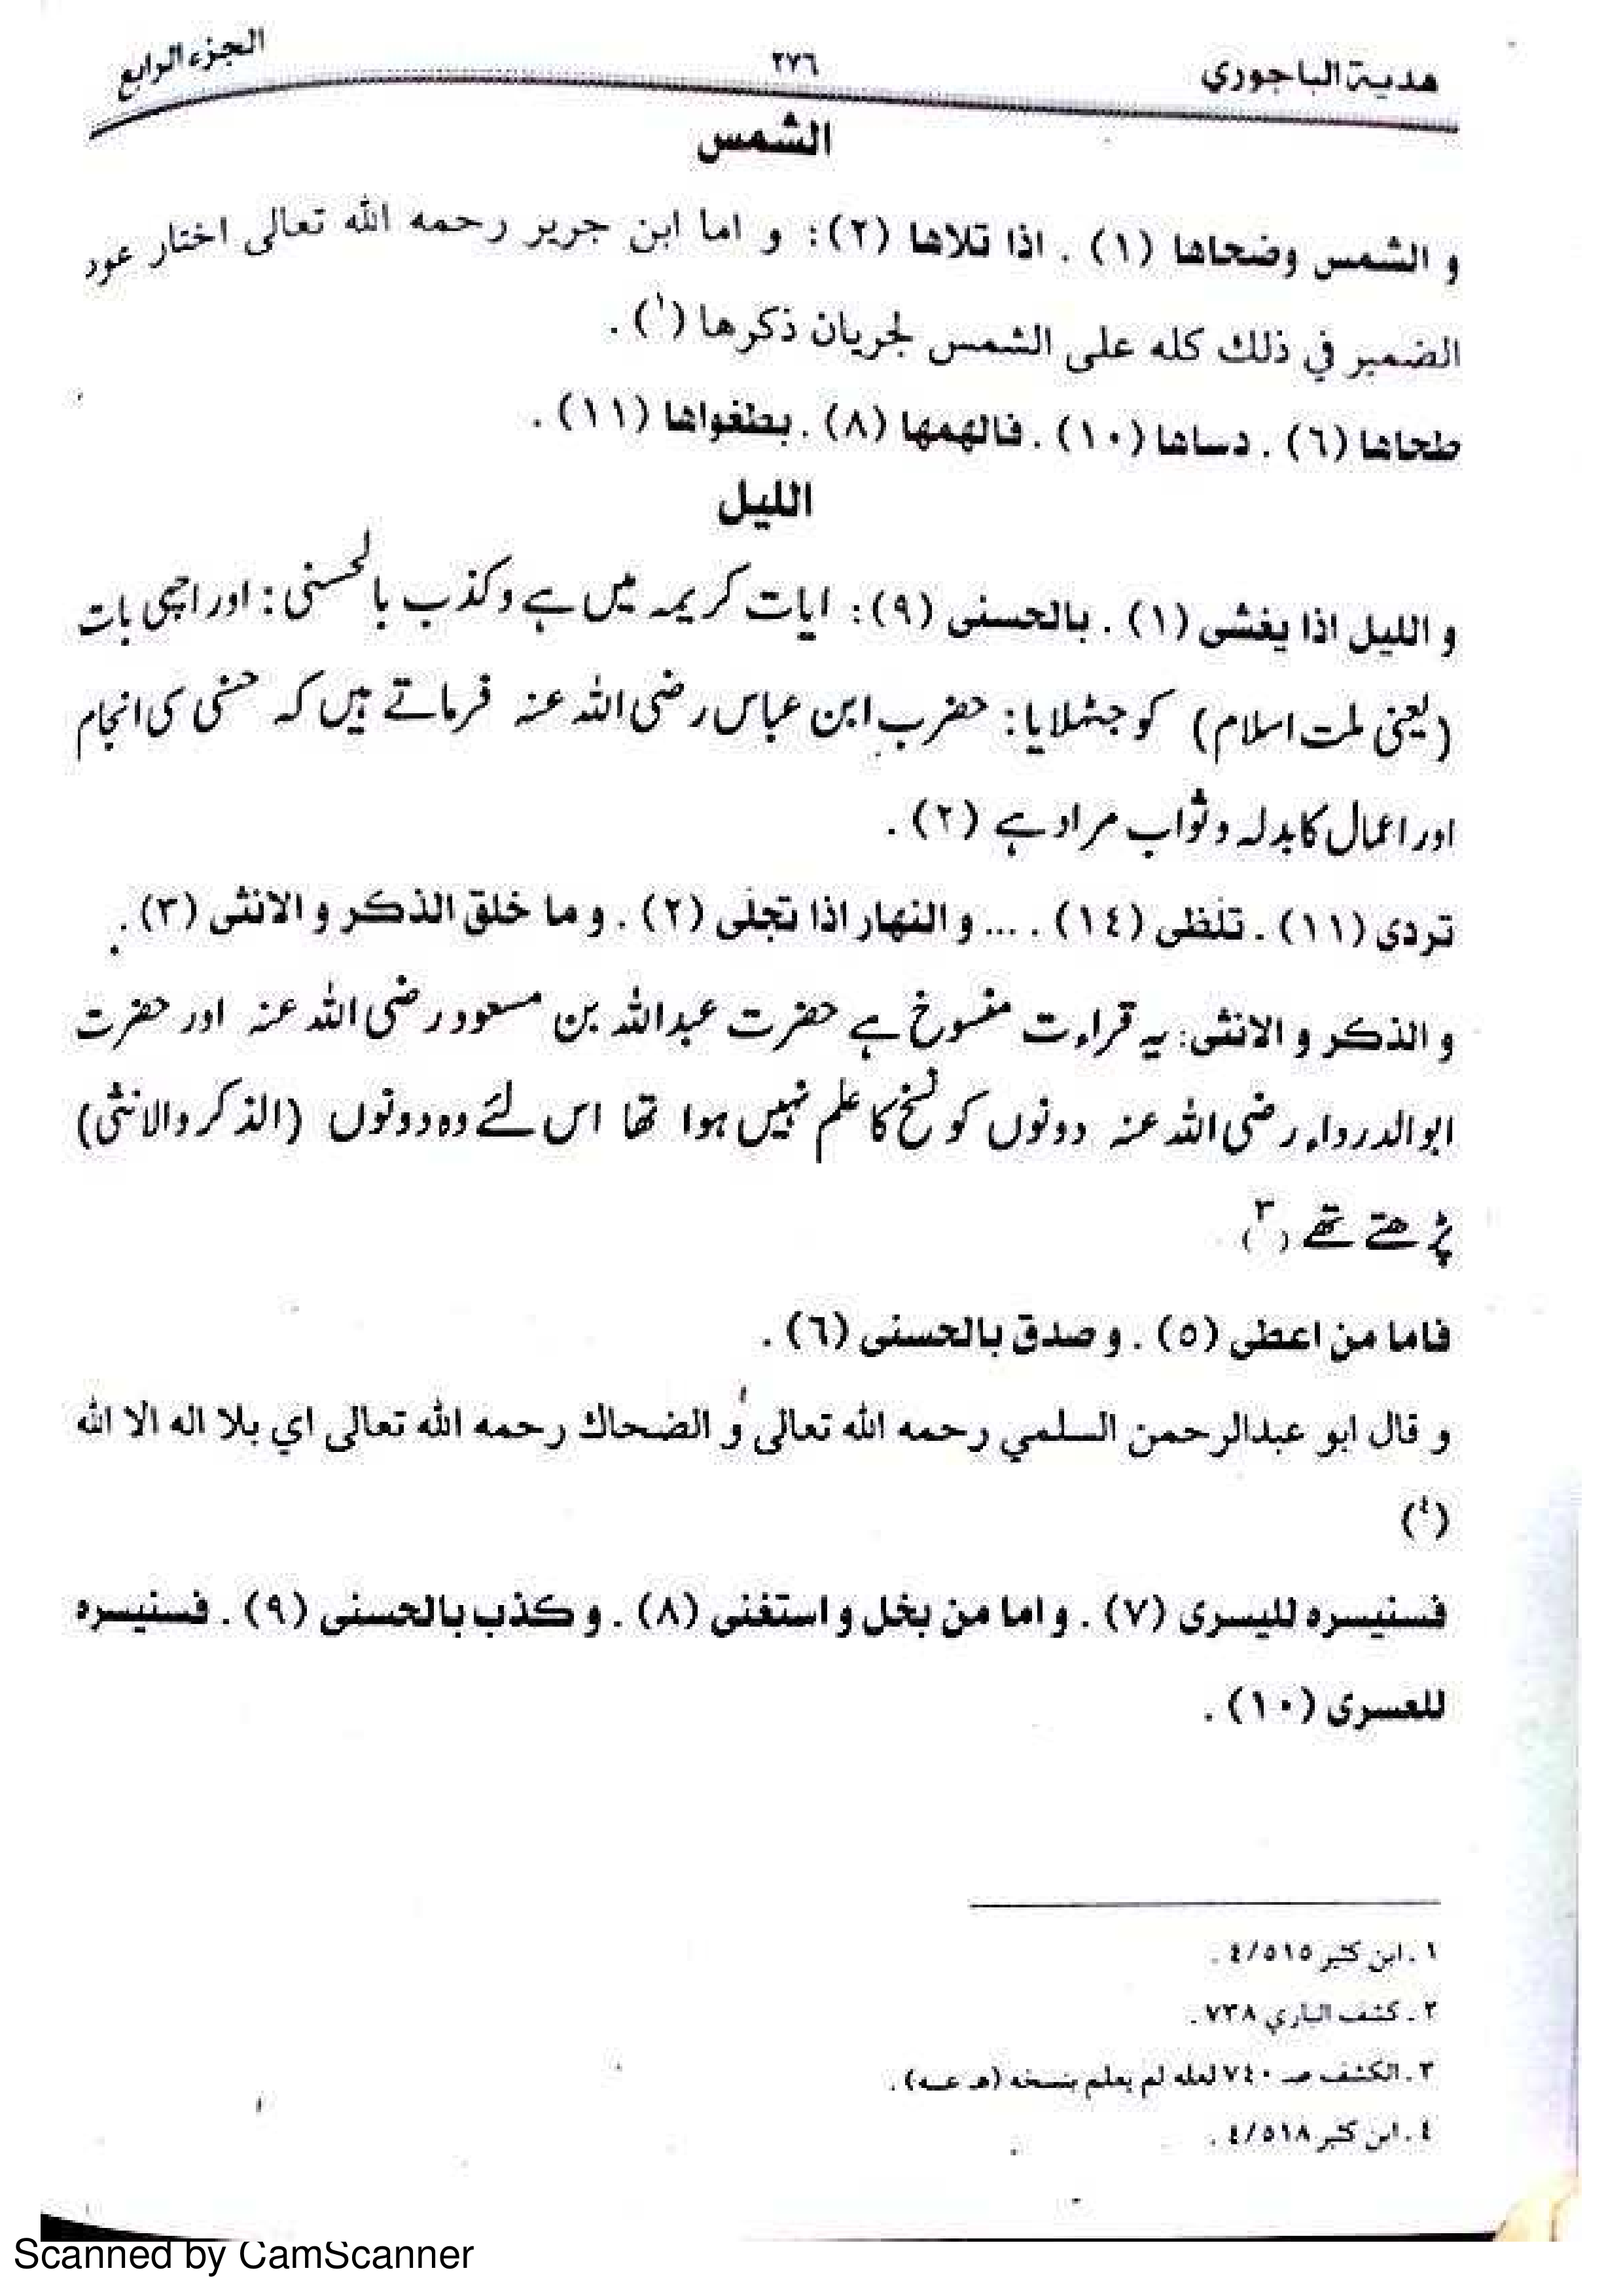 هدية الباجوري ٢٧٦ الجزء الرابع
الشمس
و الشمس وضحاها (١) . اذا تلاها (٢): و اما ابن جرير رحمه الله تعالى اختار عود
الضمير في ذلك كله على الشمس لجريان ذكرها (١) .
طحاها (٦) . دساها (١٠) . فالهمها (٨) . بطغواها (١١) .
الليل
و الليل اذا يغشى (١) . بالحسنى (٩): ايات كريمہ میں ہے وكذب بالحسنى: اور اچھی بات
(یعنی ملت اسلام) کو جھٹلایا: حضرب ابن عباس رضی اللہ عنہ فرماتے ہیں کہ حسنی کی انجام
اور اعمال کا بدلہ و ثواب مراد ہے (٢) .
تردى (١١) . تلظى (١٤) . ... و النهار اذا تجلى (٢) . و ما خلق الذكر و الانثى (٣) .
و الذكر و الانثى: یہ قراءت منسوخ ہے حضرت عبداللہ بن مسعود رضی اللہ عنہ اور حضرت
ابوالدرداء رضی اللہ عنہ دونوں کو نسخ کا علم نہیں ہوا تھا اس لئے وہ دونوں (الذكر والانثى)
پڑھتے تھے (٣)
فاما من اعطى (٥) . و صدق بالحسنى (٦) .
و قال ابو عبدالرحمن السلمي رحمه الله تعالى و الضحاك رحمه الله تعالى اي بلا اله الا الله
(٤)
فسنيسره لليسرى (٧) . و اما من بخل و استغنى (٨) . و كذب بالحسنى (٩) . فسنيسره
للعسرى (١٠) .
١ . ابن كثير ٤/٥١٥ .
٢ . كشف الباري ٧٣٨ .
٣ . الكشف صـ ٧٤٠ لعله لم يعلم بنسخه (هـ عـه) .
٤ . ابن كثير ٤/٥١٨ .
Scanned by CamScanner